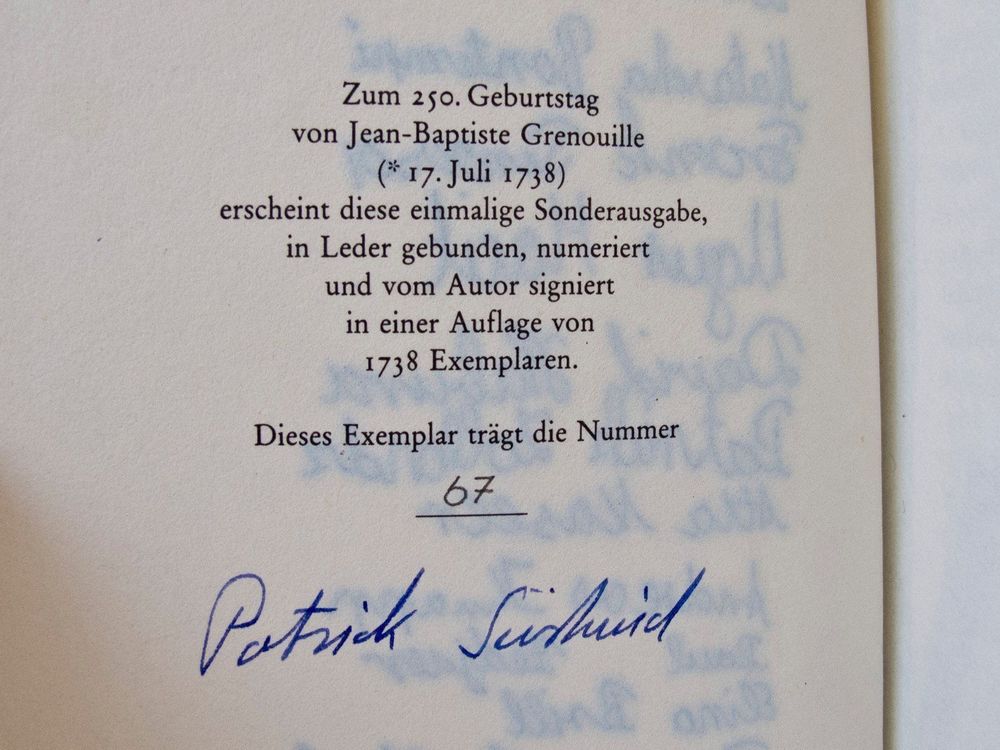 Zum 250. Geburtstag
von Jean-Baptiste Grenouille
(* 17. Juli 1738)
erscheint diese einmalige Sonderausgabe,
in Leder gebunden, numeriert
und vom Autor signiert
in einer Auflage von
1738 Exemplaren.
Dieses Exemplar trägt die Nummer
67
Patrick Süskind